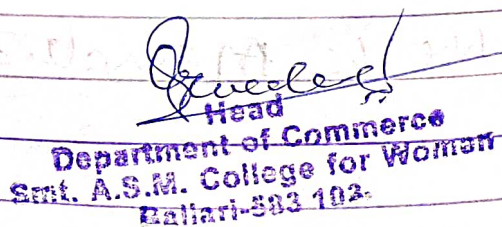 Head
Department of Commerce
Smt. A.S.M. College for Women
Ballari-583 103.